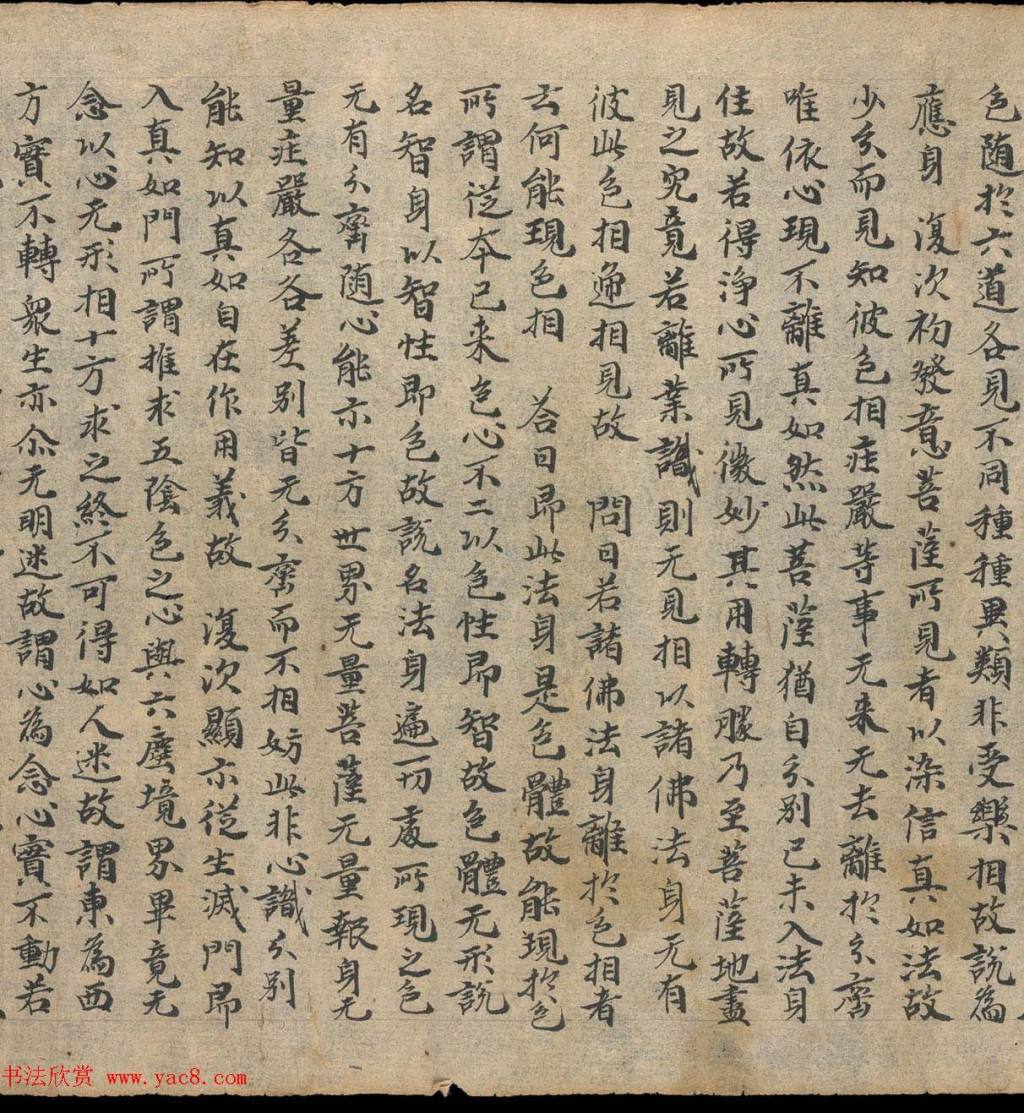 色随於六道各見不同種種異類非受樂相故說為
應身　復次初發意菩薩所見者以染信真如法故
少分而見知彼色相庄嚴等事无来无去離於分齊
唯依心現不離真如然此菩薩猶自分別已未入法身
住故若得淨心所見微妙其用轉勝乃至菩薩地盡
見之究竟若離業識則无見相以諸佛法身无有
彼此色相逓相見故　問曰若諸佛法身離於色相者
云何能現色相　荅曰即此法身是色體故能現於色
所謂從本已来色心不二以色性即智故色體无形說
名智身以智性即色故說名法身遍一切處所現之色
无有分齊随心能示十方世界无量菩薩无量報身无
量庄嚴各各差別皆无分齊而不相妨此非心識分別
能知以真如自在作用義故　復次顯示從生滅門即
入真如門所謂推求五陰色之心與六塵境界畢竟无
念以心无形相十方求之終不可得如人迷故謂東為西
方實不轉衆生亦尒无明迷故謂心為念心實不動若
书法欣赏 www.yac8.com